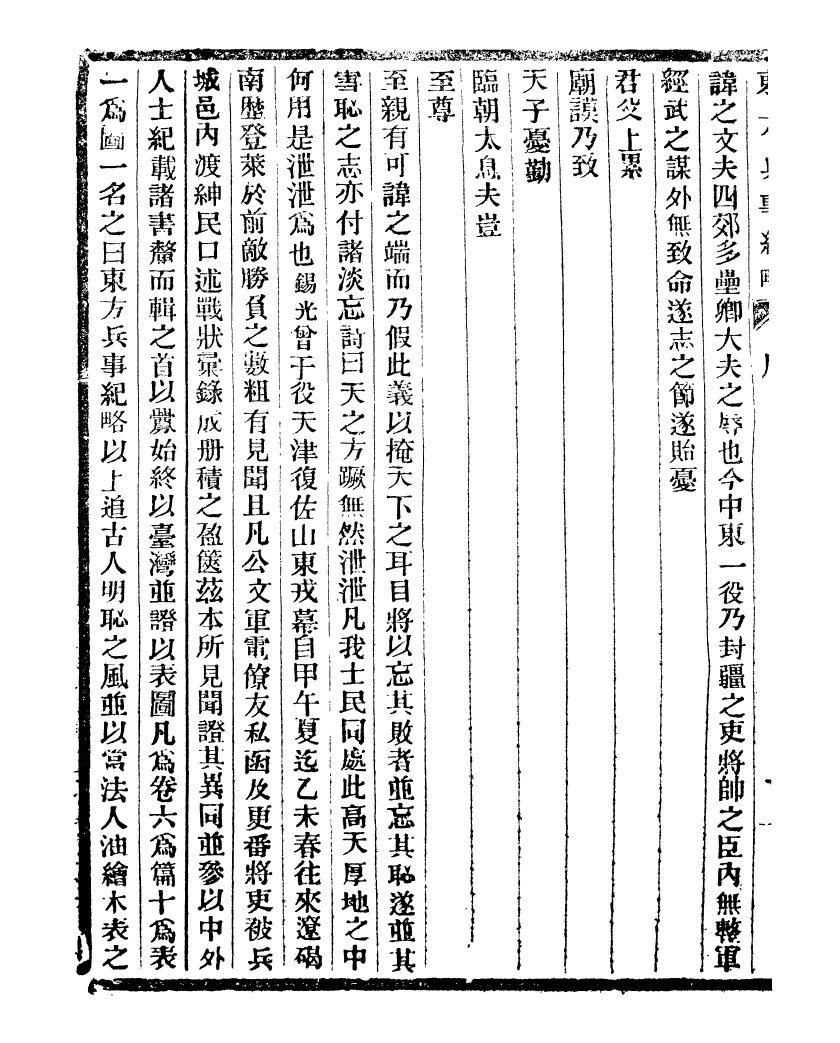 東方兵事紀略 序
諱之文夫四郊多壘卿大夫之辱也今中東一役乃封疆之吏將帥之臣內無整軍
經武之謀外無致命遂志之節遂貽憂
君父上累
廟謨乃致
天子憂勤
臨朝太息夫豈
至尊
至親有可諱之端而乃假此義以掩天下之耳目將以忘其敗者並忘其恥遂並其
雪恥之志亦付諸淡忘詩曰天之方蹶無然泄泄凡我士民同處此高天厚地之中
何用是泄泄爲也錫光曾于役天津復佐山東戎幕自甲午夏迄乙未春往來遼碣
南歷登萊於前敵勝負之數粗有見聞且凡公文軍電僚友私函及更番將吏被兵
城邑內渡紳民口述戰狀彙錄成册積之盈篋茲本所見聞證其異同並參以中外
人士紀載諸書釐而輯之首以釁始終以臺灣並譜以表圖凡爲卷六爲篇十爲表
一爲圖一名之曰東方兵事紀略以上追古人明恥之風並以當法人油繪木表之